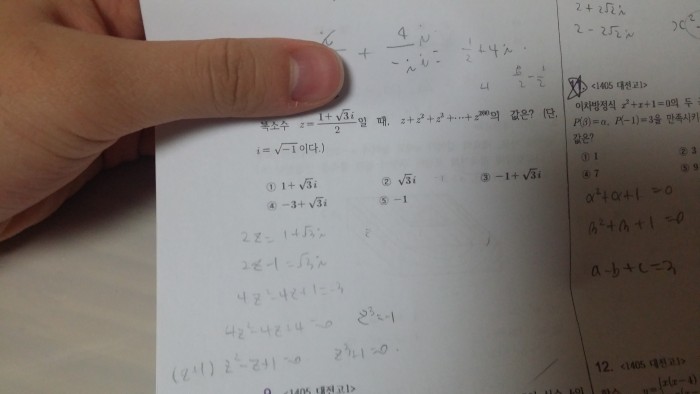 + 4/-i i = 1/2 + 4i
복소수 z=(1+√3i)/2일 때, z+z²+z³+⋯+z²⁰⁰의 값은? (단,
i=√-1이다.)
① 1+√3i ② √3i ③ -1+√3i
④ -3+√3i ⑤ -1
2z = 1+√3i
2z-1=√3i
4z²-4z+1=-3
4z²-4z+4=0 z³=-1
(z+1) z²-z+1=0 z³+1=0.
<1405 대전고1>
2+2√2i
2-2√2i
<1405 대전고1>
이차방정식 x²+x+1=0의 두
P(β)=α, P(-1)=3을 만족시키
값은?
① 1 ② 3
④ 7 ⑤ 9
α²+α+1=0
β²+β+1=0
a-b+c=3
12. <1405 대전고1>